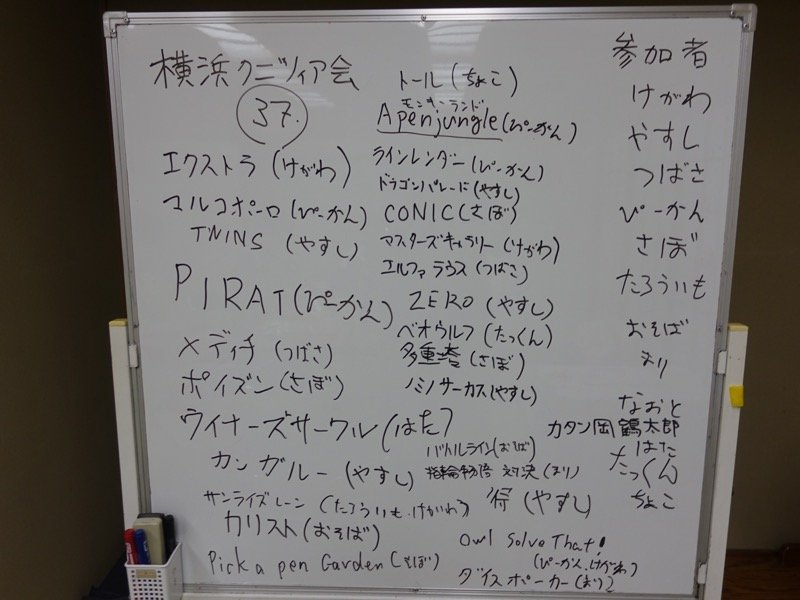 横浜クニツィア会
37.
エクストラ(けがわ)
マルコポーロ(ぴーかん)
TWINS (やすし)
PIRAT(ぴーかん)
メディチ (つばさ)
ポイズン(さぼ)
ウイナーズサークル(はた)
カンガルー(やすし)
サンライズレーン (たろういも.けがわ)
カリスト(おそば)
Pick a pen Garden(さぼ)
トール(ちょこ)
モンキーランド
Apenjungle(ぴーかん)
ラインレンダー(ぴーかん)
ドラゴンパレード(やすし)
CONIC(さぼ)
マスターズギャラリー(けがわ)
エルファラウス(つばさ)
ZERO(やすし)
ベオウルフ(たっくん)
多重塔(さぼ)
ノミノサーカス(やすし)
バトルライン(おそば)
指輪物語 対決(まり)
符(やすし)
Owl Solve That!
(ぴーかん.けがわ)
ダイスポーカー(まり)
参加者
けがわ
やすし
つばさ
ぴーかん
さぼ
たろういも
おそば
まり
なおと
カタン岡鶴太郎
はた
たっくん
ちょこ